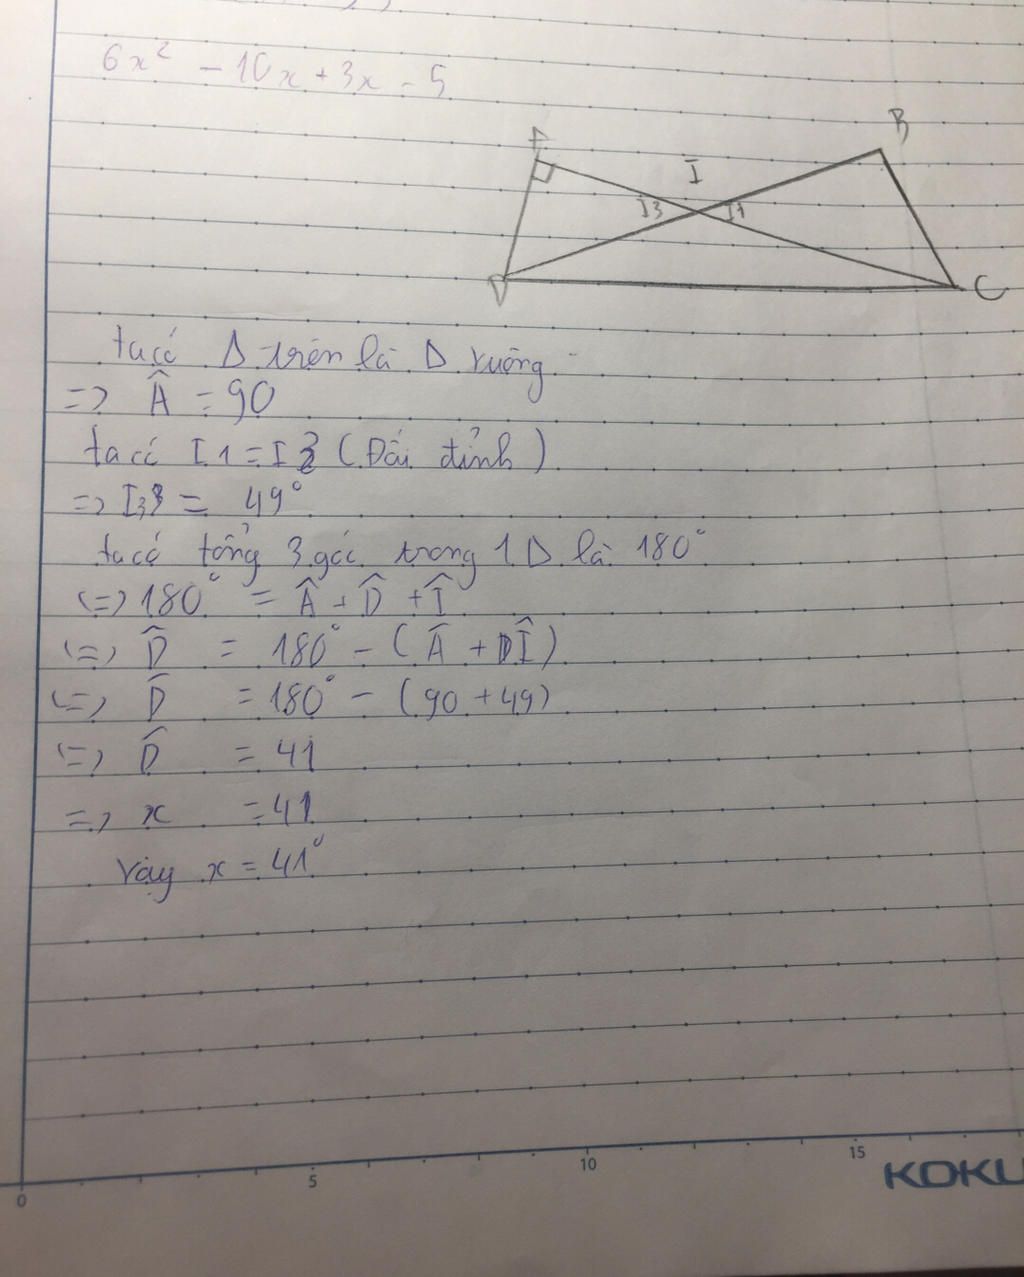 6x² - 10x + 3x - 5
A
B
I
I3
I1
D
C
ta có Δ trên là Δ vuông
=> Â = 90
ta có I1 = I3 (Đối đỉnh)
=> I3 = 49°
ta có tổng 3 góc trong 1 Δ là 180°
(=) 180° = Â + D̂ + Î
(=) D̂ = 180° - (Â + Î)
(=) D̂ = 180° - (90 + 49)
(=) D̂ = 41
=> x = 41
Vậy x = 41°
0
5
10
15
KOKU